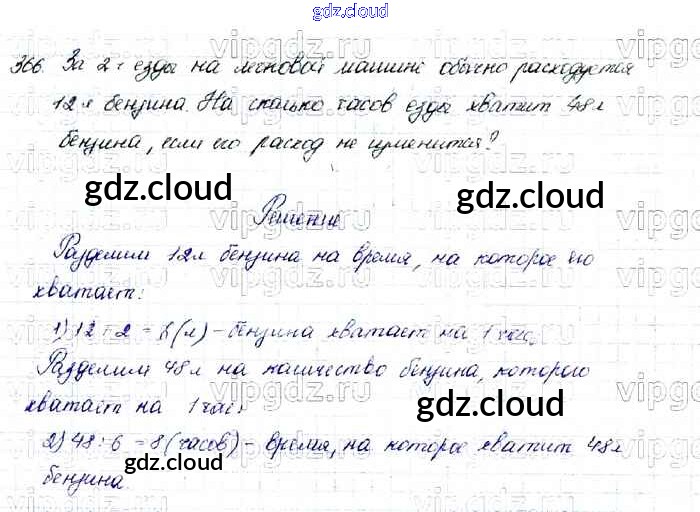 gdz.cloud
366. За 2 ч езды на легковой машине обычно расходуется
12 л бензина. На сколько часов езды хватит 48 л
бензина, если его расход не изменится?
gdz.cloud gdz.cloud
Решение
Разделим 12 л бензина на время, на которое его
хватает:
1) 12 : 2 = 6 (л) – бензина хватает на 1 час,
Разделим 48 л на количество бензина, которого
хватает на 1 час:
gdz.cloud gdz.cloud
2) 48 : 6 = 8 (часов) – время, на которое хватит 48 л
бензина.
gdz.cloud